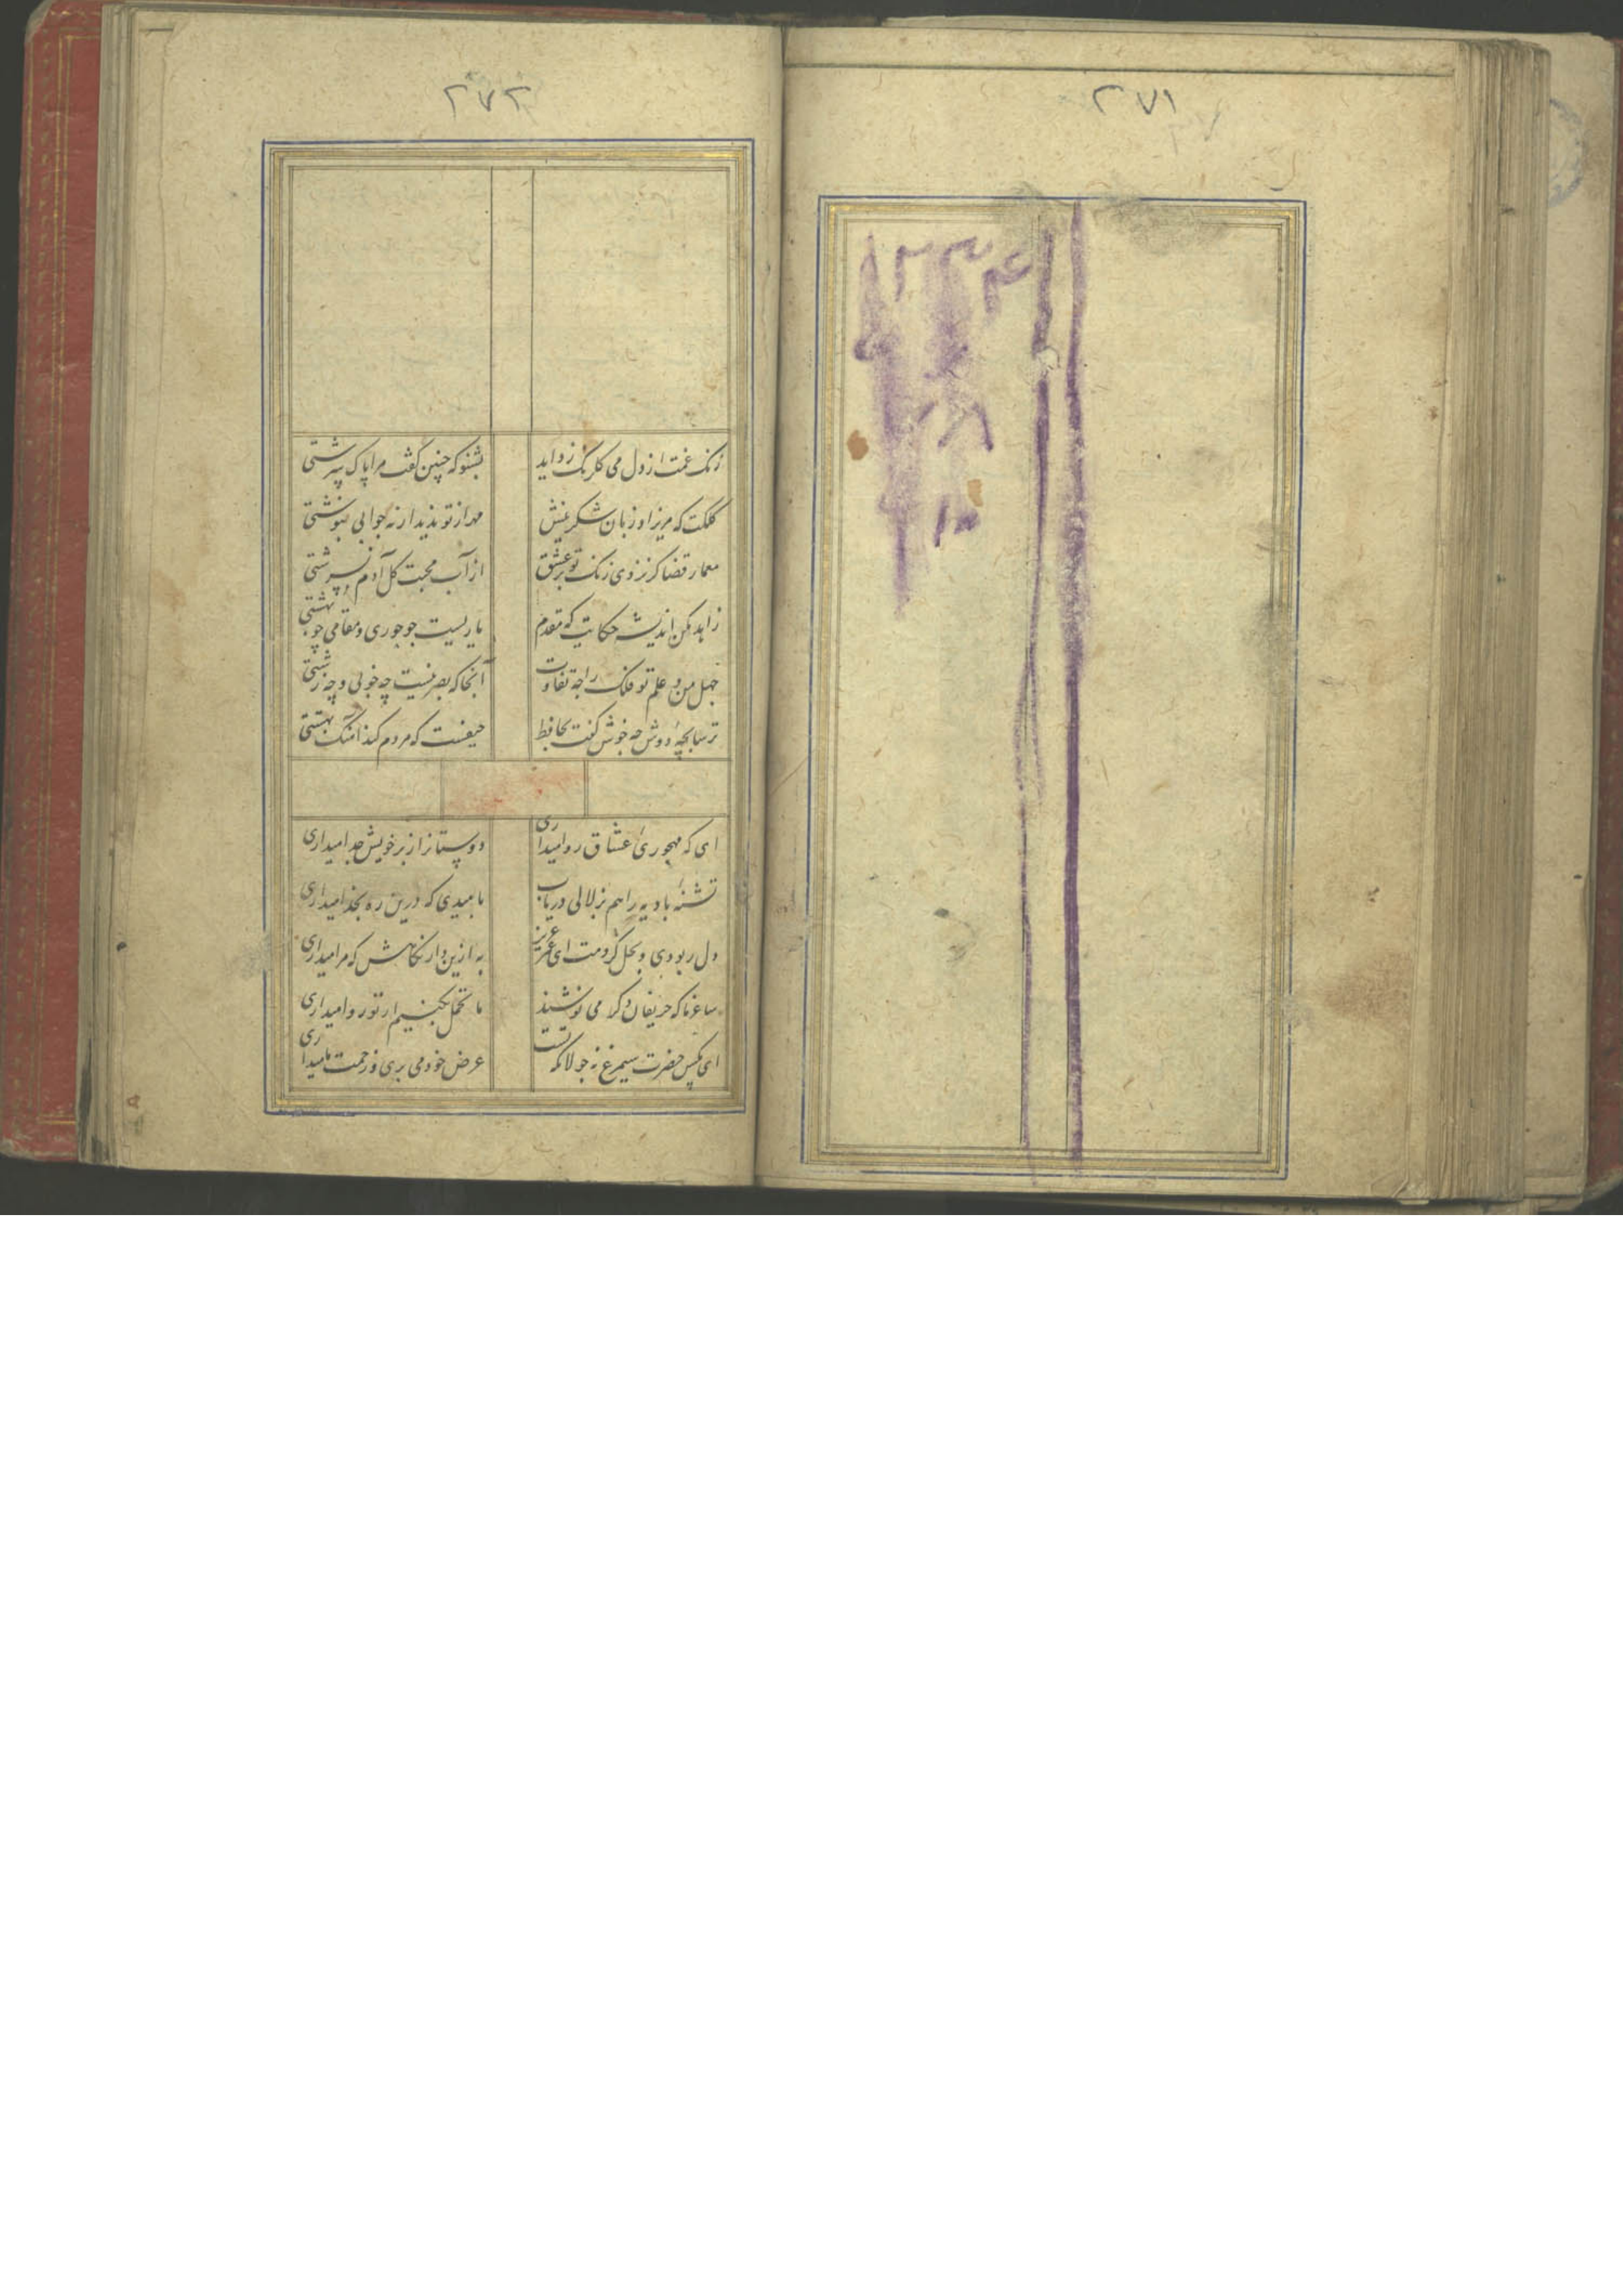 ۲۷۱
۱۲۳۴
۲۷۲
زنک غمت از دل می کلرنک زداید بشنو که چنین گفت مرا پاک سرشتی
کلکت که مریزاد زبان شکرینش مهر از تو ندید ار نه جوابی بنوشتی
معمار قضا کر نزدی رنک تو بر عشق از آب محبت کل آدم نسرشتی
زاهد مکن اندیشه حکایت که مقدم یاریست جو حوری و مقامی چو بهشتی
جهل من و علم تو فلک را چه تفاوت آنجا که بصر نیست چه خوبی و چه زشتی
ترسابچهٔ دوش چه خوش کفت بحافظ حیفست که مردم کند آهنک بهشتی
ای که مهجوری عشاق روا میداری دوستانرا ز بر خویش جدا میداری
تشنهٔ بادیه را هم بزلالی دریاب بامیدی که درین ره بخدا میداری
دل ربودی و بحل کردمت ای عزیز به ازین دار نکاهش که مرا میداری
ساغر ما که حریفان دکر می نوشند ما تحمل بکنیم ار تو روا میداری
ای مکس حضرت سیمرغ نه جولانکه تست عرض خود می بری و زحمت ما میداری